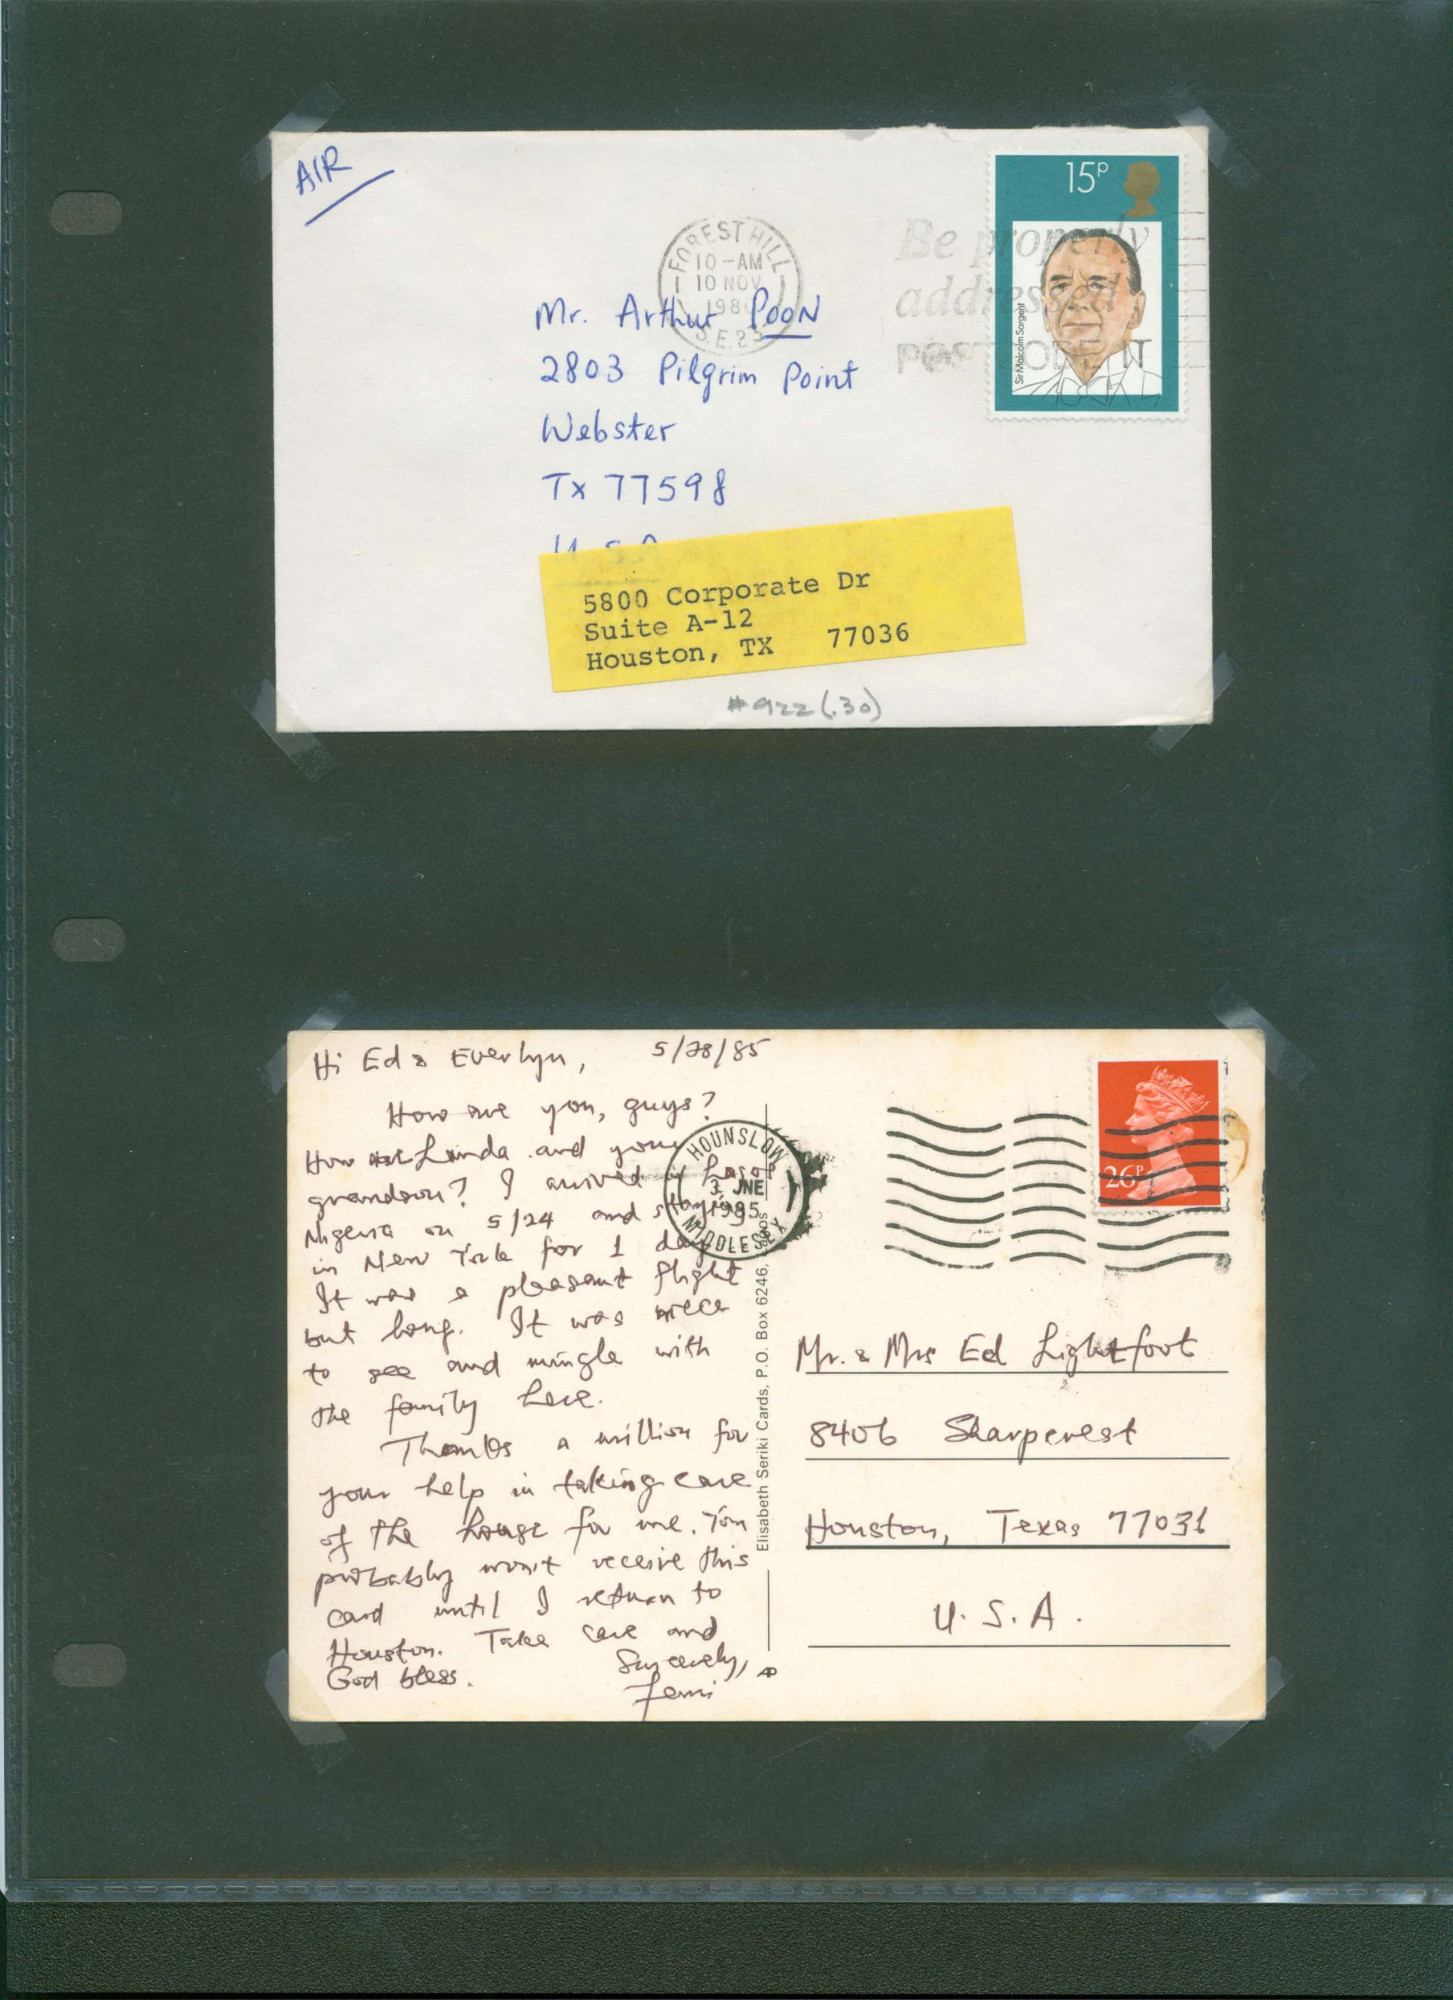 AIR
15P
Sir Malcolm Sargent
FOREST HILL
10-AM
10 NOV
1980
S.E.23
Be properly
addressed
POSTCODE IT
Mr. Arthur POON
2803 Pilgrim Point
Webster
Tx 77598
U.S.A
5800 Corporate Dr
Suite A-12
Houston, TX 77036
#922 (.30)
Hi Ed & Everlyn, 5/28/85
How are you, guys?
How Linda and your
grandson? I arrived Lagos
Nigeria on 5/24 and staying
in New York for 1 day
It was a pleasant flight
but long. It was nice
to see and mingle with
the family here.
Thanks a million for
your help in taking care
of the house for me. You
probably won't receive this
card until I return to
Houston. Take care and
God bless. Sincerely,
Femi
HOUNSLOW
3 JNE
1985
MIDDLESEX
Elisabeth Seriki Cards, P.O. Box 6246, Lagos
AP
26P
Mr. & Mrs Ed Lightfoot
8406 Sharpcrest
Houston, Texas 77036
U.S.A.